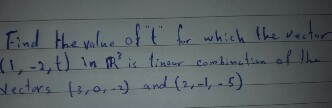 Find the value of "t" for which the vector
(1, -2, t) in R³ is linear combination of the
vectors (3, 0, -2) and (2, -1, -5)